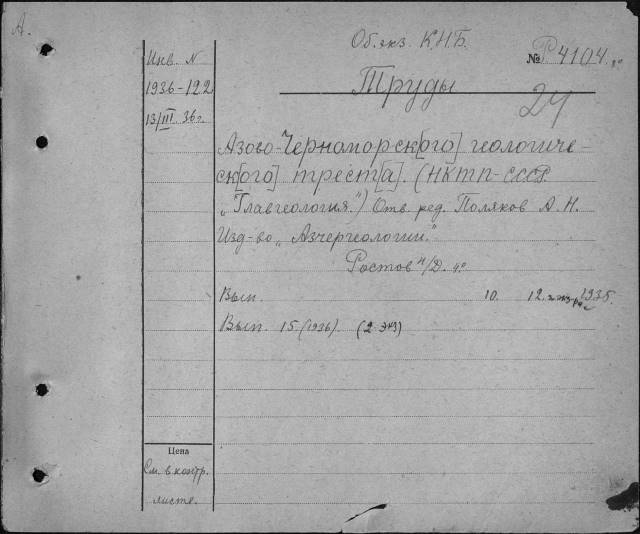 А.
Об. экз. К.Н.Б.
№ Р4104. 4°
Инв. N
1936-122
13/III. 36 г.
Труды
24
Азово-Черноморск[ого] геологиче-
ск[ого] трест[а]. (НКТП-СССР.
„Главгеология“.) Отв. ред. Поляков А.Н.
Изд-во „Азчергеологии“
Ростов н/Д. 4°
Вып. 10. 12. 1935.
Вып. 15. (1936). (2 экз)
Цена
См. в контр.
листе.